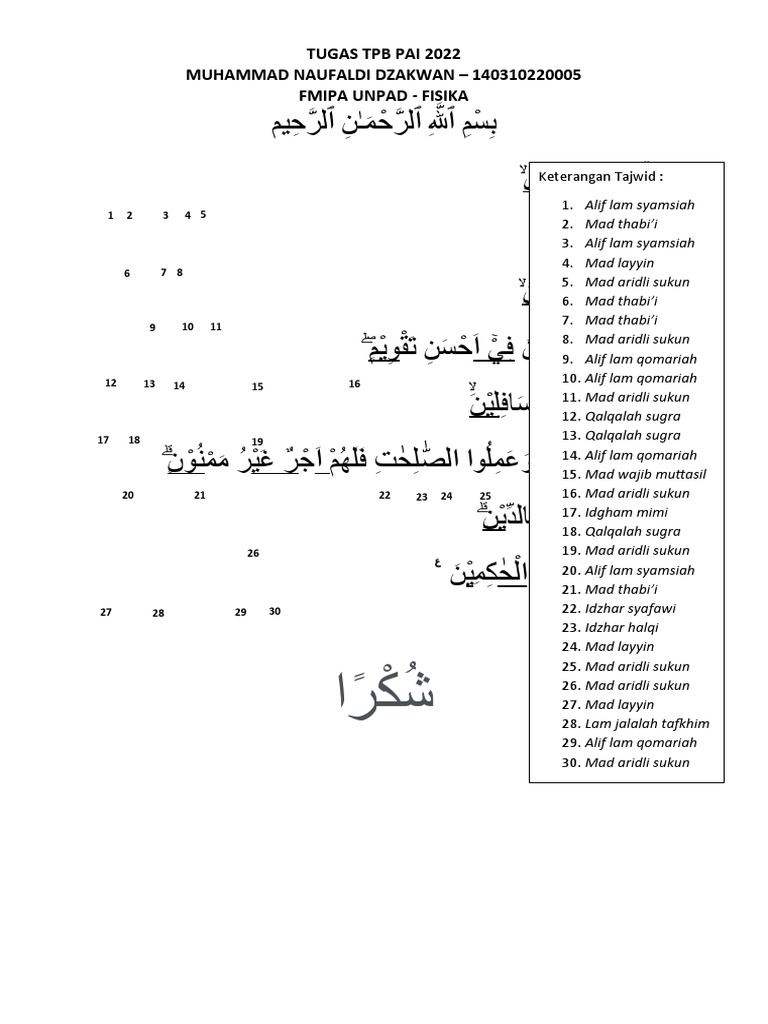 TUGAS TPB PAI 2022
MUHAMMAD NAUFALDI DZAKWAN – 140310220005
FMIPA UNPAD - FISIKA
بِسْمِ ٱللَّهِ ٱلرَّحْمَـٰنِ ٱلرَّحِيم
1 2 3 4 5
6 7 8
9 10 11
فِيْٓ اَحْسَنِ تَقْوِيْمٍۖ
12 13 14 15 16
سَافِلِيْنَۙ
17 18 19
وَعَمِلُوا الصّٰلِحٰتِ فَلَهُمْ اَجْرٌ غَيْرُ مَمْنُوْنٍۗ
20 21 22 23 24 25
بِالدِّيْنِۗ
26
الْحٰكِمِيْنَ ࣖ
27 28 29 30
شُكْرًا
Keterangan Tajwid :
1. Alif lam syamsiah
2. Mad thabi’i
3. Alif lam syamsiah
4. Mad layyin
5. Mad aridli sukun
6. Mad thabi’i
7. Mad thabi’i
8. Mad aridli sukun
9. Alif lam qomariah
10. Alif lam qomariah
11. Mad aridli sukun
12. Qalqalah sugra
13. Qalqalah sugra
14. Alif lam qomariah
15. Mad wajib muttasil
16. Mad aridli sukun
17. Idgham mimi
18. Qalqalah sugra
19. Mad aridli sukun
20. Alif lam syamsiah
21. Mad thabi’i
22. Idzhar syafawi
23. Idzhar halqi
24. Mad layyin
25. Mad aridli sukun
26. Mad aridli sukun
27. Mad layyin
28. Lam jalalah tafkhim
29. Alif lam qomariah
30. Mad aridli sukun